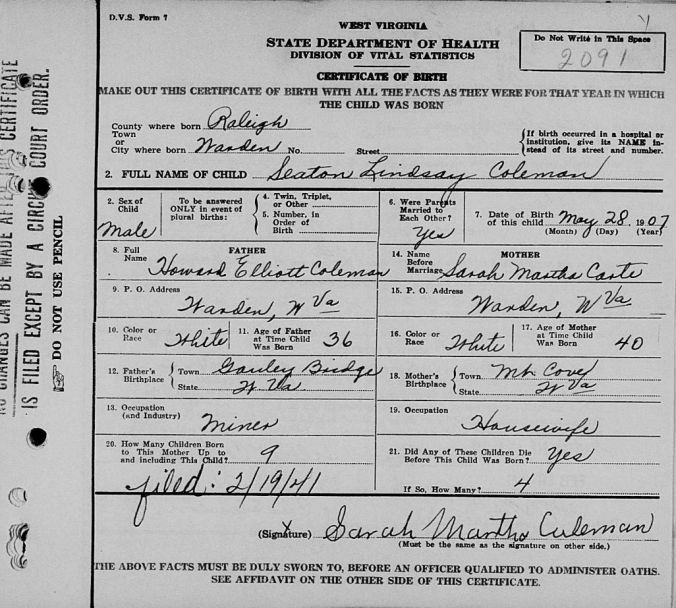 D.V.S. Form 7
WEST VIRGINIA
STATE DEPARTMENT OF HEALTH
DIVISION OF VITAL STATISTICS
Do Not Write in This Space
2091
CERTIFICATE OF BIRTH
MAKE OUT THIS CERTIFICATE OF BIRTH WITH ALL THE FACTS AS THEY WERE FOR THAT YEAR IN WHICH
THE CHILD WAS BORN
County where born Raleigh
Town
or
City where born Warden No. Street
If birth occurred in a hospital or
institution, give its NAME in-
stead of its street and number.
2. FULL NAME OF CHILD Seaton Lindsay Coleman
2. Sex of
Child
Male
To be answered
ONLY in event of
plural births:
4. Twin, Triplet,
or Other
5. Number, in
Order of
Birth
6. Were Parents
Married to
Each Other?
Yes
7. Date of Birth
of this child May 28, 1907
(Month) (Day) (Year)
8. Full
Name
FATHER
Howard Elliott Coleman
14. Name
Before
Marriage
MOTHER
Sarah Martha Carte
9. P. O. Address
Warden, W Va
15. P. O. Address
Warden, W Va
10. Color or
Race White
11. Age of Father
at Time Child
Was Born 36
16. Color or
Race White
17. Age of Mother
at Time Child
Was Born 40
12. Father's
Birthplace
Town Gauley Bridge
State W. Va.
18. Mother's
Birthplace
Town Mt. Cove
State W Va
13. Occupation
(and Industry)
Miner
19. Occupation
Housewife
20. How Many Children Born
to This Mother Up to
and including This Child? 9
21. Did Any of These Children Die
Before This Child Was Born? Yes
If So, How Many? 4
filed: 2/19/41
(Signature) Sarah Martha Coleman
(Must be the same as the signature on other side.)
THE ABOVE FACTS MUST BE DULY SWORN TO, BEFORE AN OFFICER QUALIFIED TO ADMINISTER OATHS.
SEE AFFIDAVIT ON THE OTHER SIDE OF THIS CERTIFICATE.
NO CHANGES CAN BE MADE CERTIFICATE
IS FILED EXCEPT BY A COURT ORDER.
DO NOT USE PENCIL